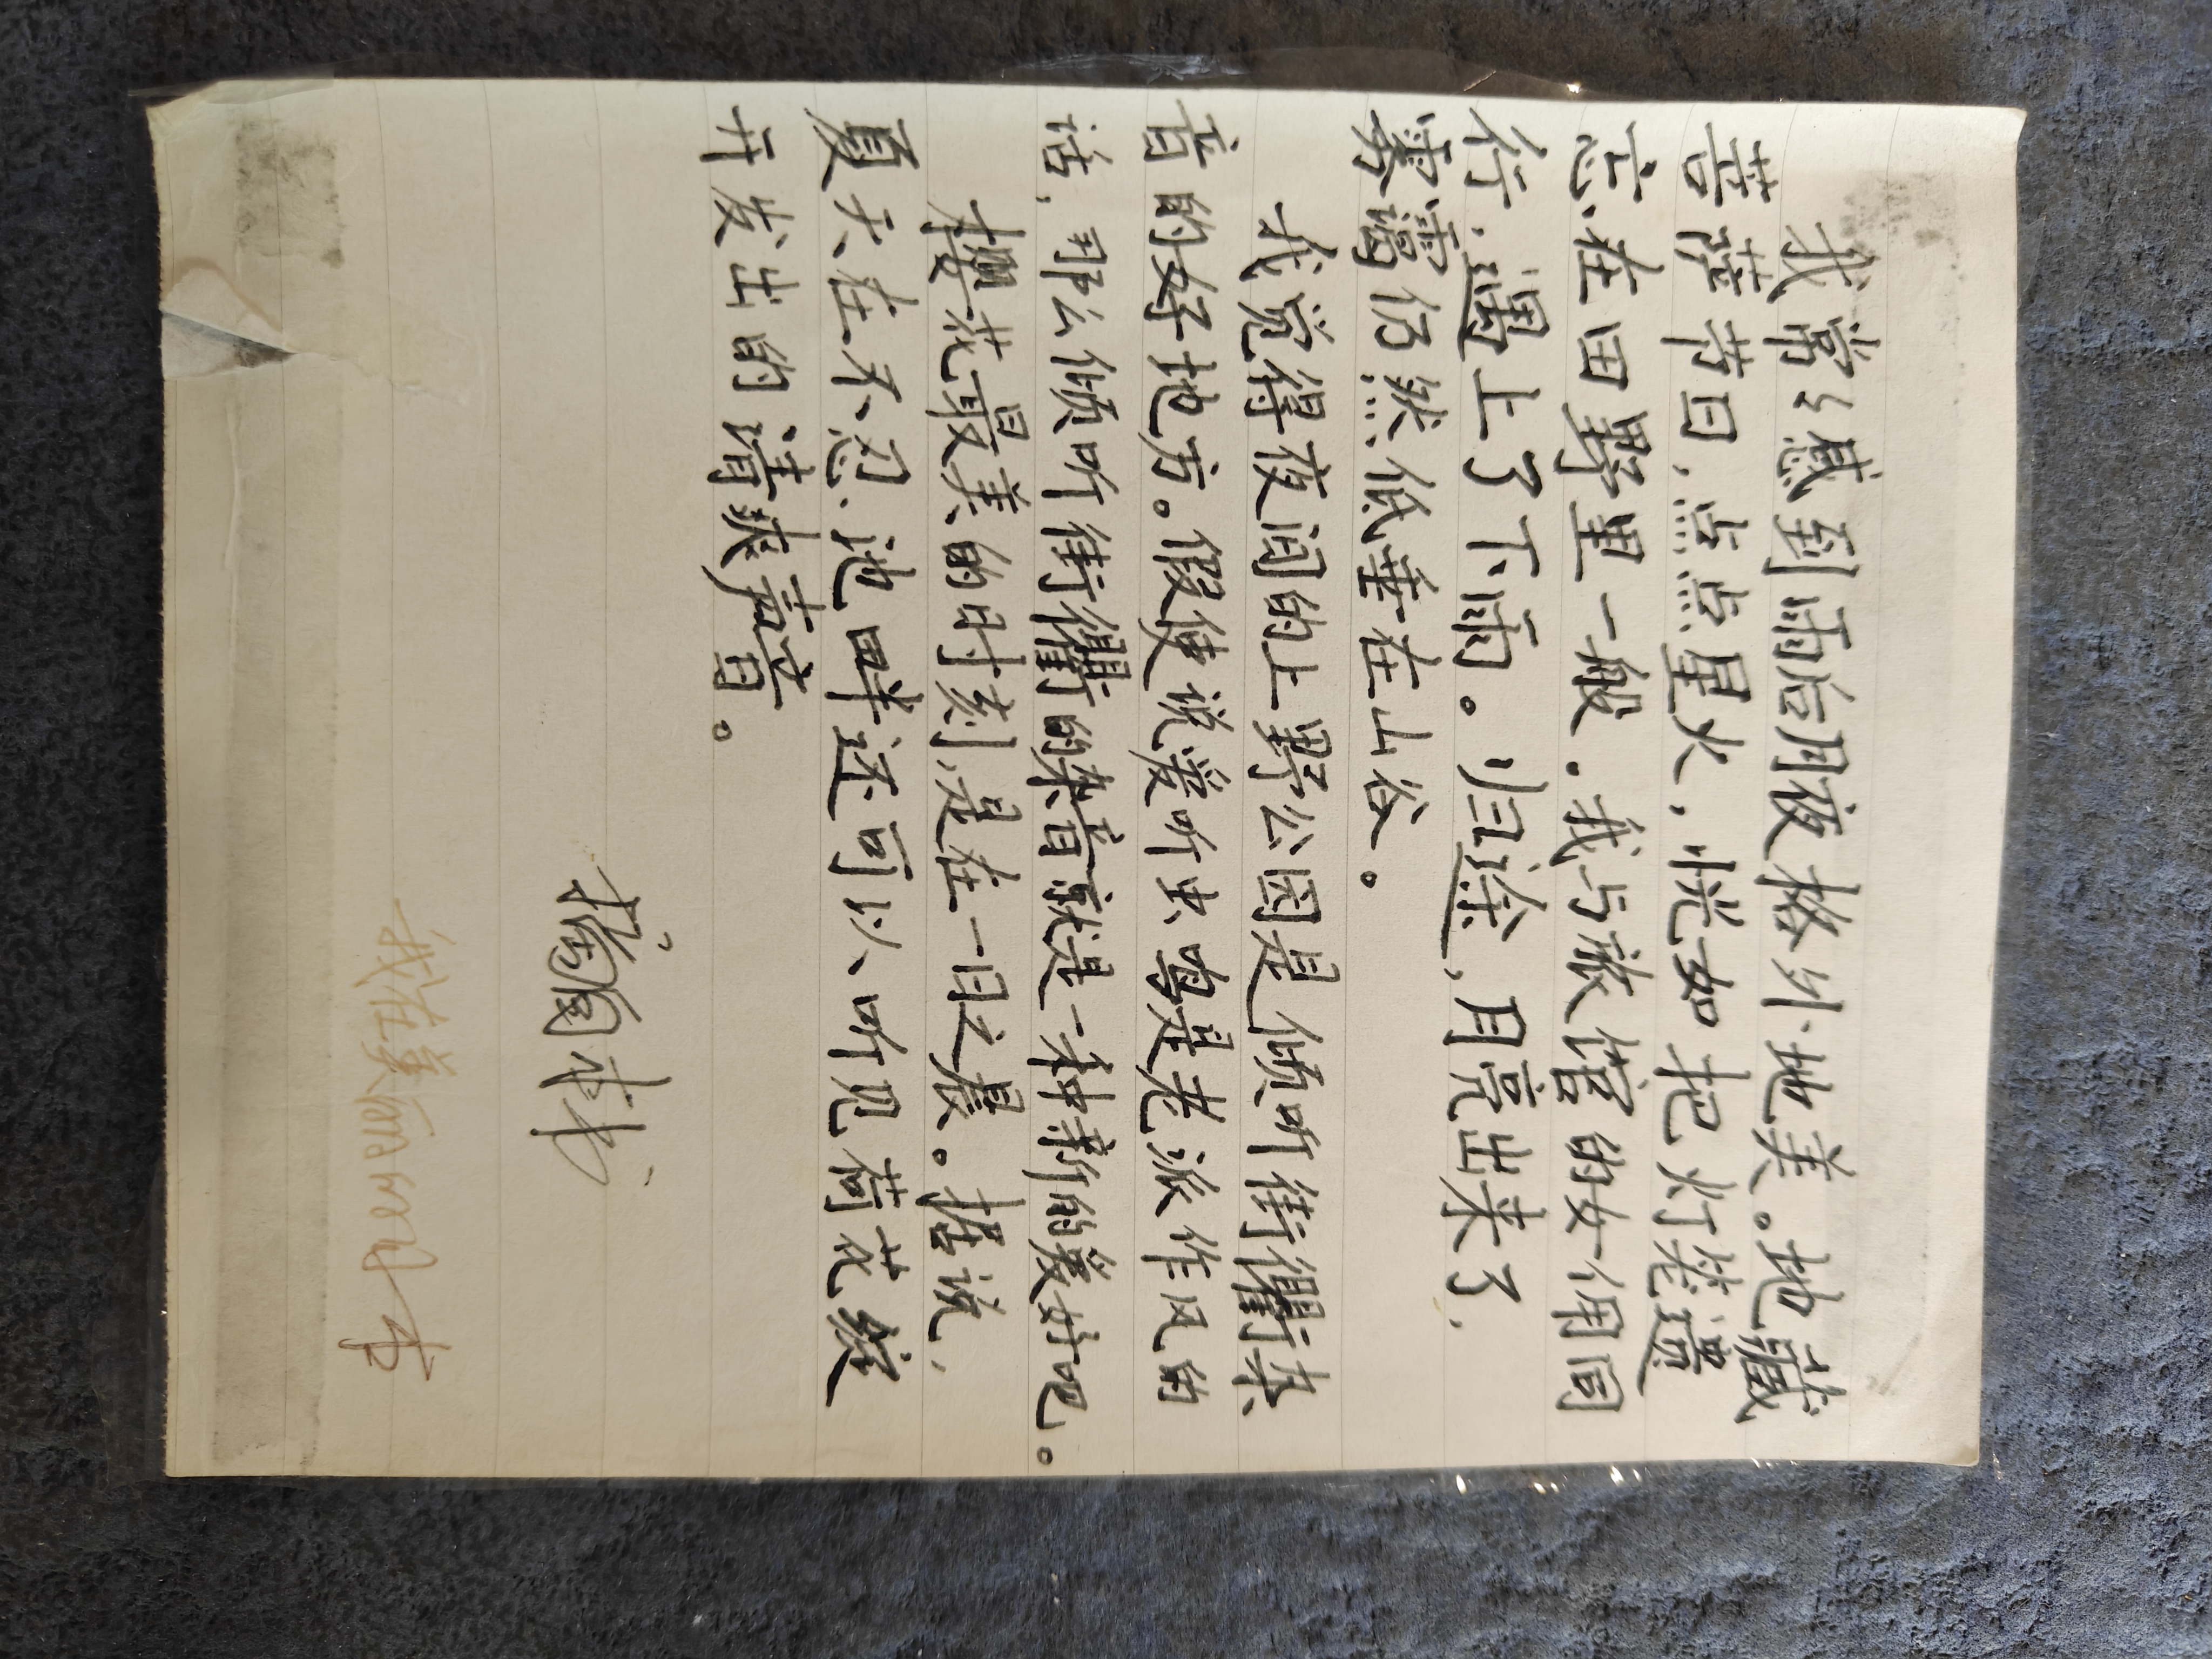 我常々感到雨后月夜格外地美。地藏
菩萨节日,点点星火,恍如把灯笼遗
忘在田野里一般。我与旅馆的女佣同
行,遇上了下雨。归途,月亮出来了,
雾霭仍然低垂在山谷。
我觉得夜间的上野公园是倾听街衢杂
音的好地方。假使说爱听虫鸣是老派作风的
话,那么倾听街衢的杂音就是一种新的爱好吧。
樱花最美的时刻,是在一日之晨。据说,
夏天在不忍池畔还可以听见荷花绽
开发出的清爽声音。